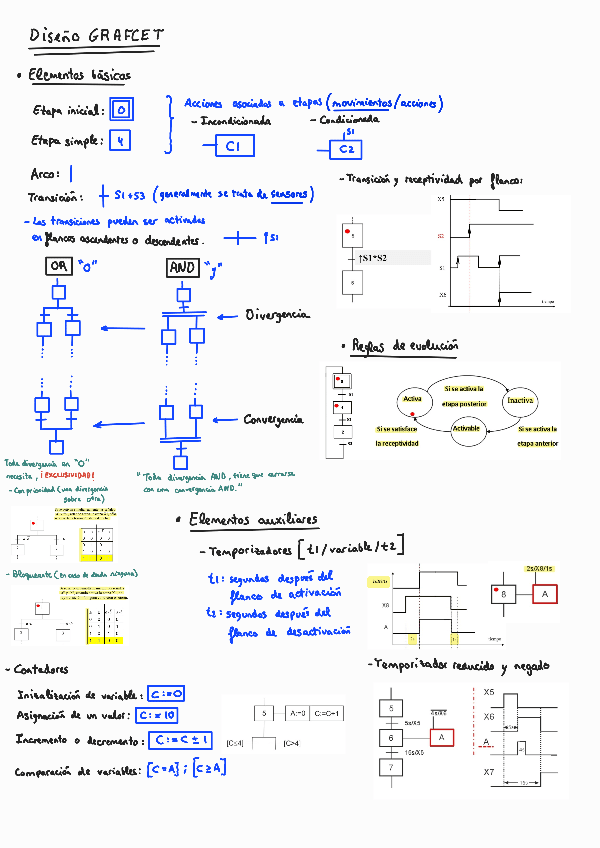 Diseño GRAFCET
• Elementos básicos
Etapa inicial: 0
Etapa simple: 4
Acciones asociadas a etapas (movimientos/acciones)
- Incondicionada
- Condicionada
C1
S1
C2
Arco:
Transición: S1+S3 (generalmente se trata de sensores)
- Las transiciones pueden ser activadas
en flancos ascendentes o descendentes. ↑S1
- Transición y receptividad por flanco:
5
↑S1*S2
6
X5
S2
S1
X6
tiempo
OR "O"
AND "y"
Divergencia
Convergencia
Toda divergencia en "O"
necesita, ¡EXCLUSIVIDAD!
- Con prioridad (una divergencia
sobre otra)
- Bloqueante (en caso de darla ninguna)
"Toda divergencia AND, tiene que cerrarse
con una convergencia AND."
• Reglas de evolución
Activa
Si se activa la
etapa posterior
Inactiva
Si se satisface
la receptividad
Activable
Si se activa la
etapa anterior
• Elementos auxiliares
- Temporizadores [t1/variable/t2]
t1: segundos después del
flanco de activación
t2: segundos después del
flanco de desactivación
X8
A
tiempo
2s/X8/1s
8
A
- Temporizador reducido y negado
5
5s/X5
6
4s/X6
A
15s/X6
7
X5
X6
A
X7
5s
4s
15s
- Contadores
Inizalización de variable: C:=0
Asignación de un valor: C:=10
Incremento o decremento: C:=C±1
Comparación de variables: [C=A] ; [C≥A]
5
A:=0
C:=C+1
[C≤4]
[C>4]